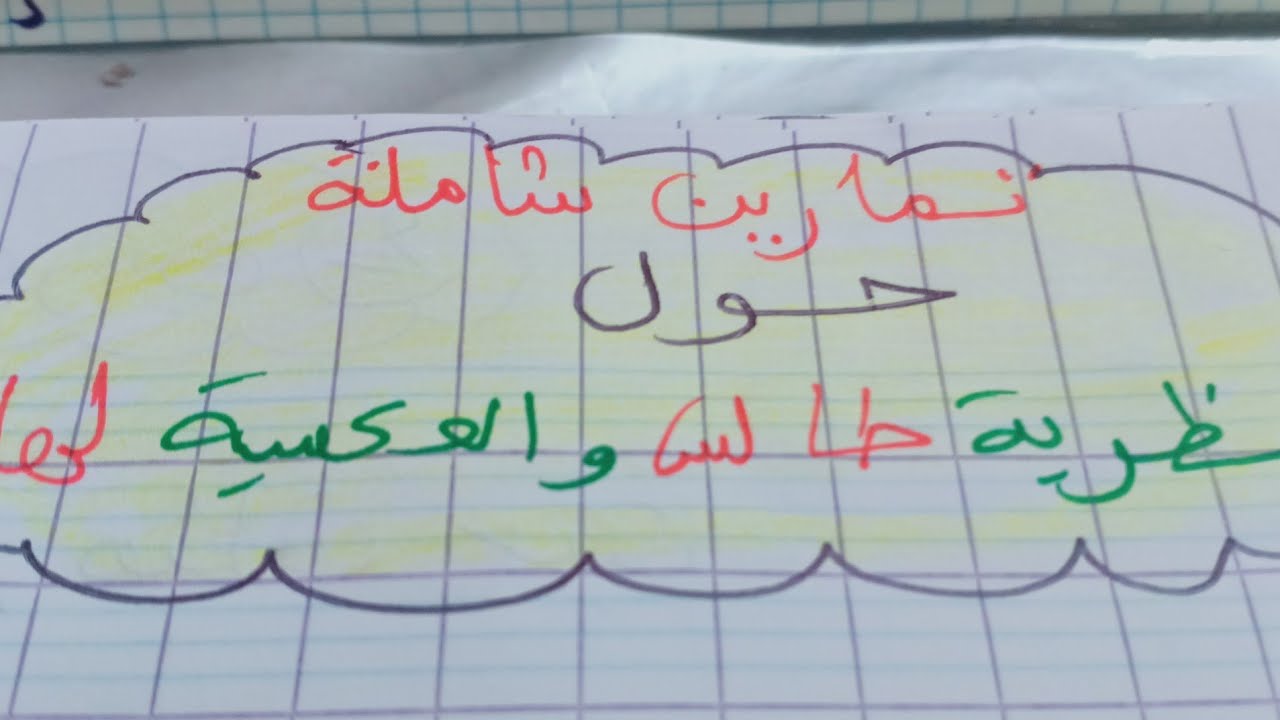 تمارين شاملة
حول
ظرية طالس والعكسية لها